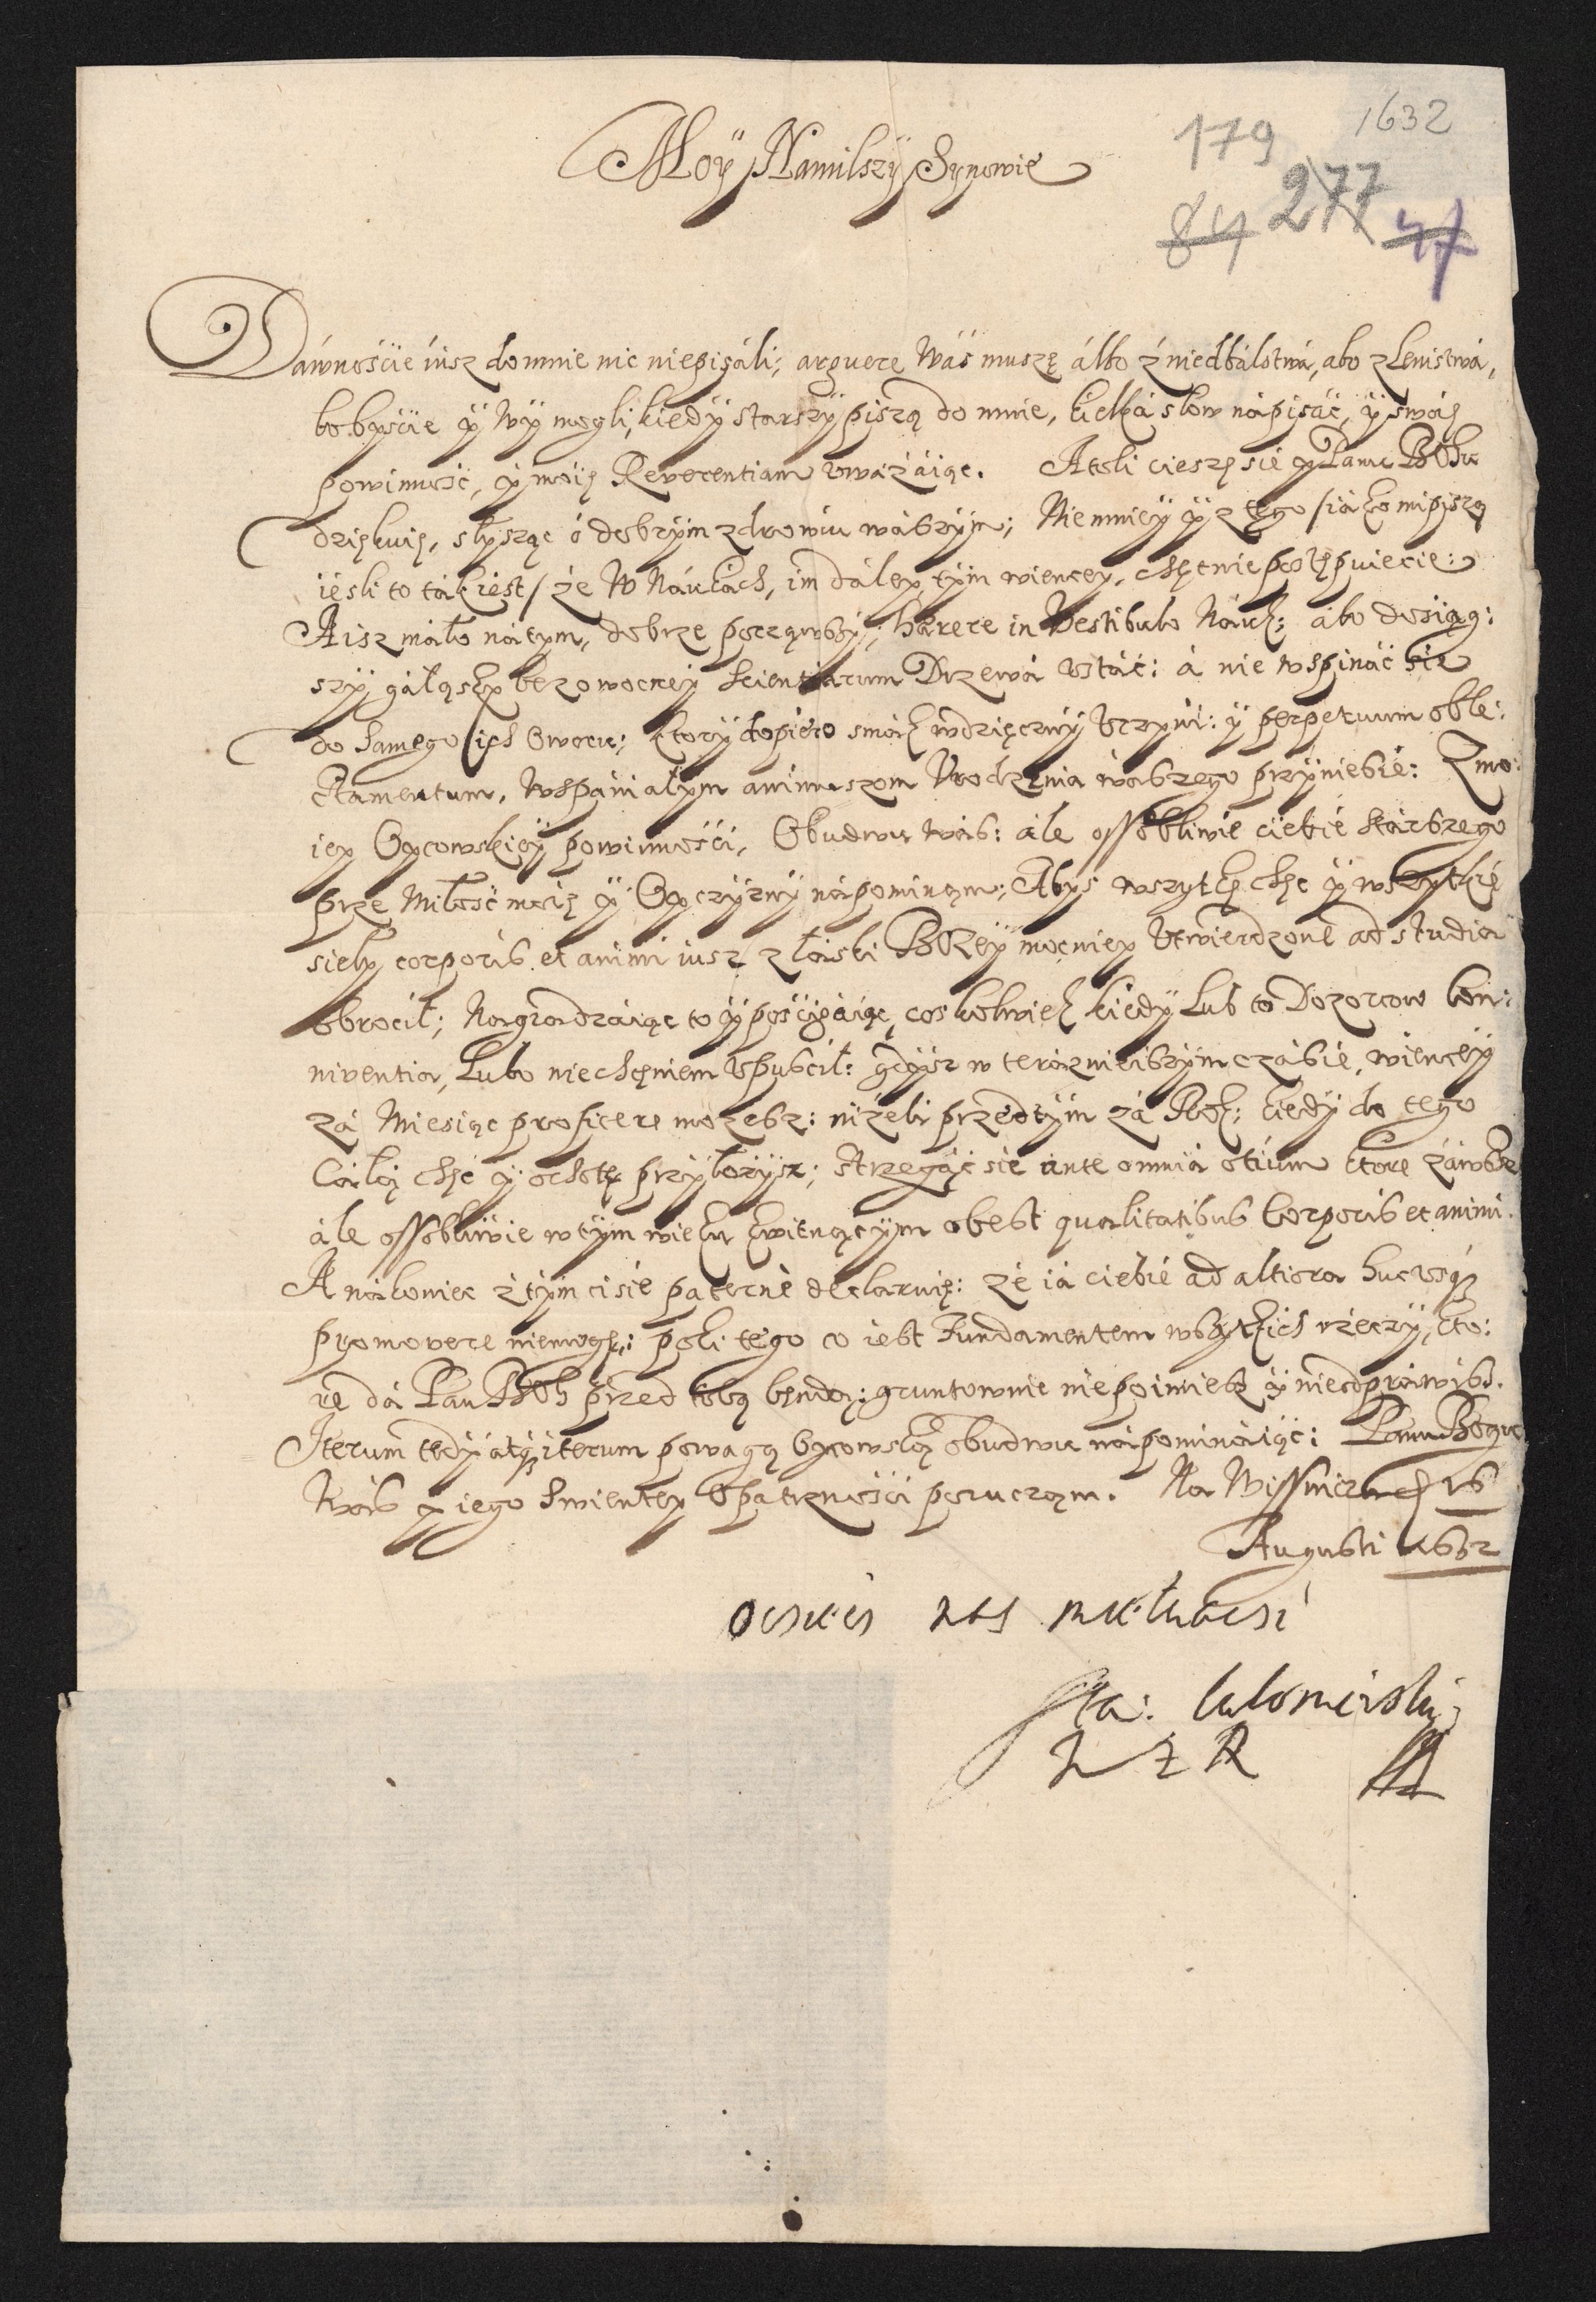 1632
179
277
84
47
Moÿ Namilszÿ Synowie
Dáwnoście iusz do mnie nic niepisáli; arguere Wás muszę álbo z niedbálstwá, abo z Lenistwá,
bobyście ÿ Wÿ mogli, kiedÿ starszÿ piszą do mnie, kielká słow nápisáć, ÿ swoię
powinność, ÿ moię Reverentiam uwazáiąc. Atoli cieszę się ÿ Panu BOhu
dziękuię, słysząc o dobrÿm zdrowiu wászÿm; Niemnieÿ ÿ z tego / iáko mi piszą
iesli to ták iest / że W Náukách, im dáleÿ tÿm wienceÿ, chętnie postępuiecie:
A isz máło nátym, dobrze począwszÿ, hærere in Vestibulo Náuk: ábo dosiąg:
szÿ gáłąsky bezowocneÿ scientiarum Drzewá ustáć: á nie wspináć się
do samego ich Owocu; ktorÿ dopiero smák wdzięcznÿ uczÿni: ÿ perpetuum oble:
ctamentum, wspániałÿm animuszom Urodzenia wászego przÿniesie: Z mo:
ieÿ Oÿcowskieÿ powinności, Obudwu wás: ále ossobliwie ciebie stárszego
prze Miłość moię ÿ Oÿczÿznÿ nápominam; Abÿs wszytkę chęć ÿ wszytkie
siełÿ corporis et animi iusz z łáski BOżeÿ mocnieÿ utwierdzone ad studia
obrocił; Nagradzáiąc to ÿ pościgáiąc, coskolwiek kiedÿ Lub to Dozorcow kon:
niventia, Lubo niechceniem upuscił: gdÿsz w teráznieiszÿm czásie, wienceÿ
zá Miesiąc proficere mozesz: nizeli przedtÿm zá Rok; kiedÿ do tego
całą chęć ÿ ochotę przÿłozÿsz; strzegąc się ante omnia otium ktore záwsze
ále ossobliwie w tÿm wieku kwitnącÿm obest qualitatibus corporis et animi.
A nákoniec z tÿm ci się paterne declaruię: ze iá ciebie ad altiora hucusq
promovere niemogę: poki tego co iest Fundamentem wszytkich rzeczÿ, kto:
re dá Pan BOh przed tobą bendą: gruntownie niepoimiesz ÿ nieodpráwisz.
Iterum tedÿ atq iterum powagą oÿcowską obudwu nápomináiąc: Panu Bogu
Wás ÿ iego Swienteÿ Opatrznośći poruczam. Na Wissniczu d 26
Augusti 1632
ociec was miłuiąci
Sta: Lubomirski
W Z R